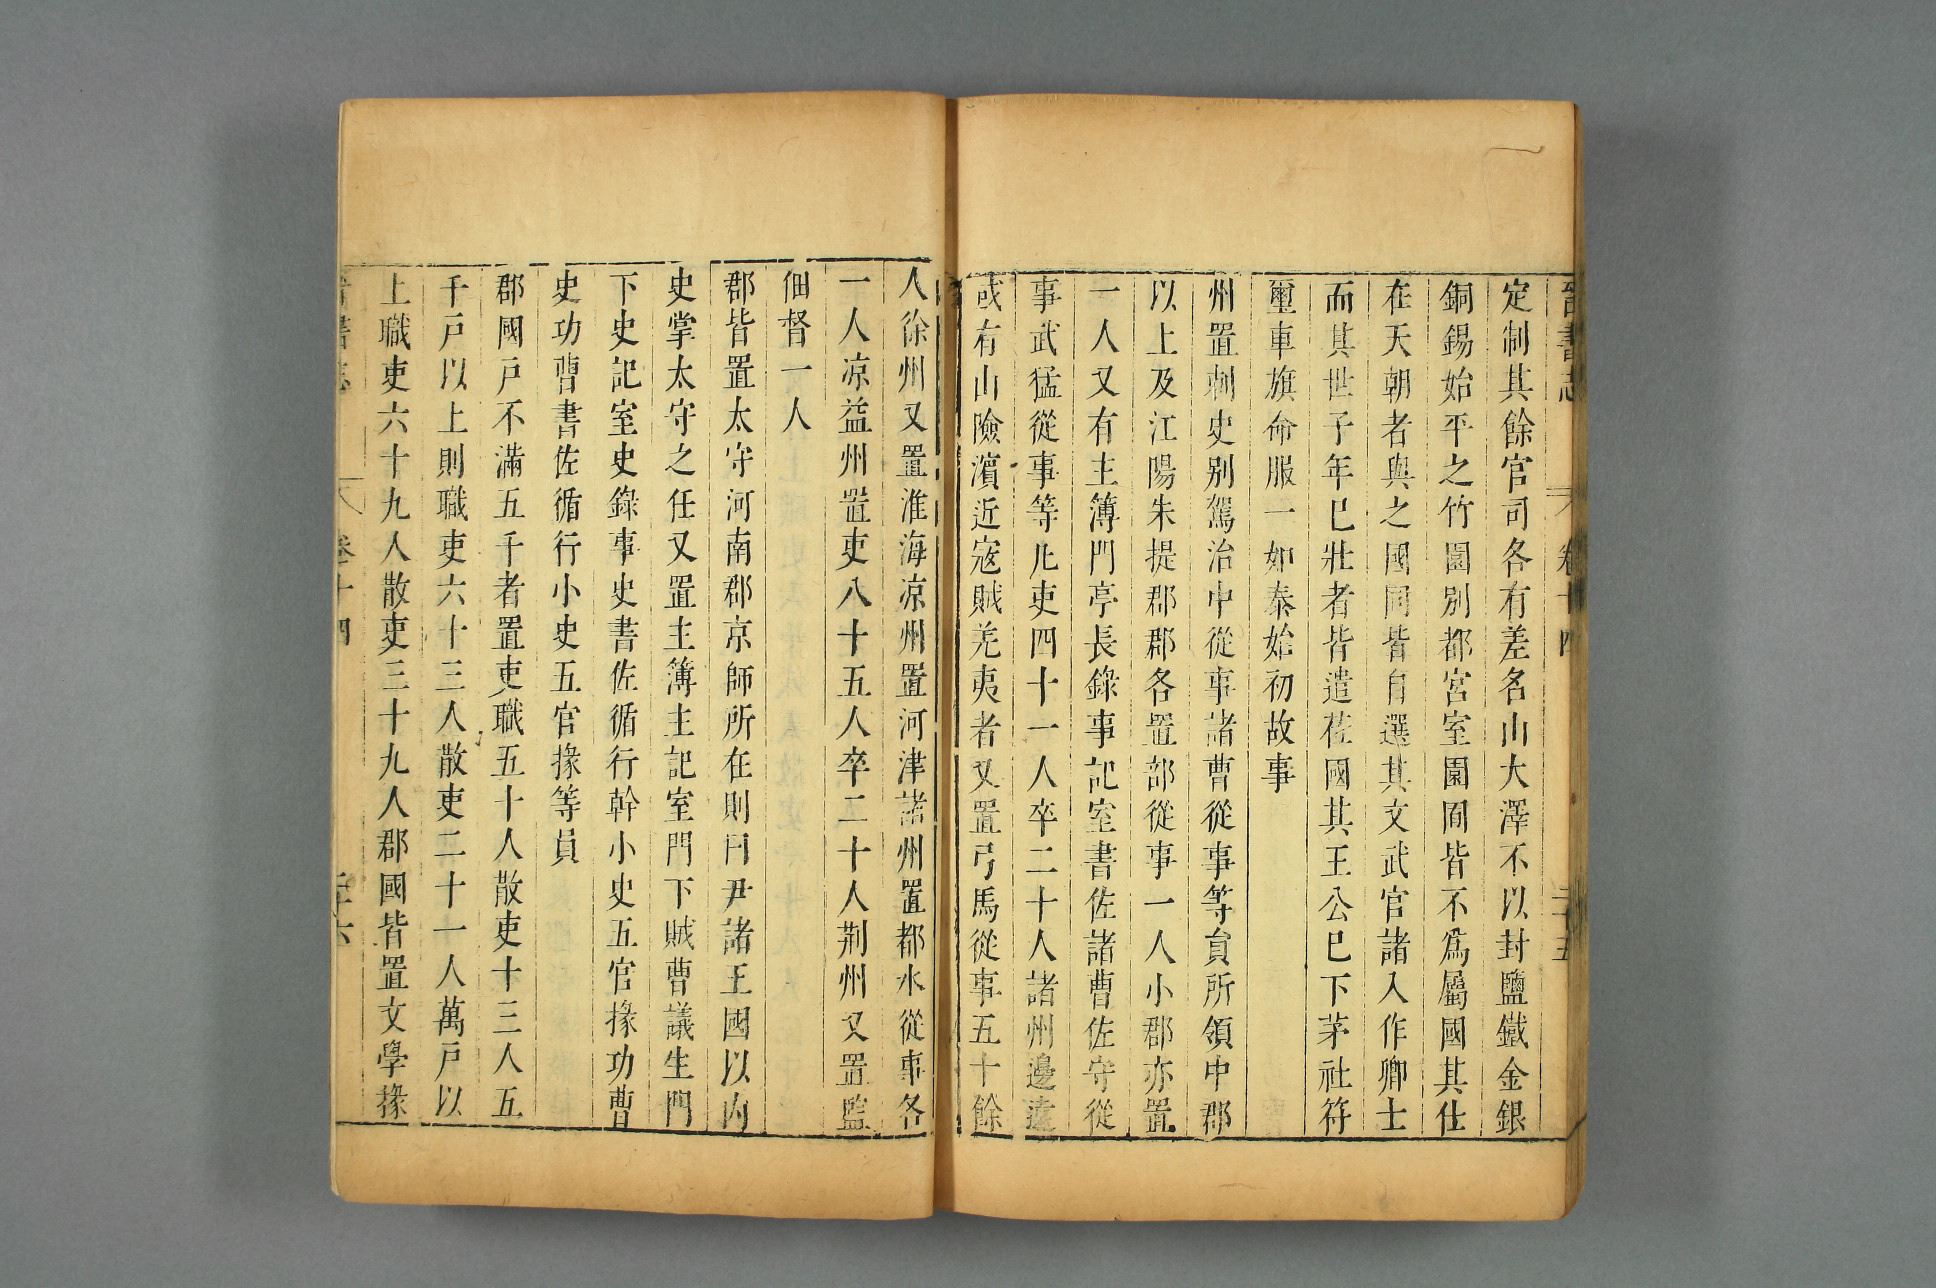 晉書志 卷十四 二十五
定制其餘官司各有差名山大澤不以封鹽鐵金銀
銅錫始平之竹園別都宮室園囿皆不為屬國其仕
在天朝者與之國同皆自選其文武官諸入作卿士
而其世子年已壯者皆遣莅國其王公已下茅社符
璽車旗命服一如泰始初故事
州置刺史別駕治中從事諸曹從事等員所領中郡
以上及江陽朱提郡郡各置部從事一人小郡亦置
一人又有主簿門亭長錄事記室書佐諸曹佐守從
事武猛從事等凡吏四十一人卒二十人諸州邊遠
或有山險濵近寇賊羌夷者又置弓馬從事五十餘
人徐州又置淮海凉州置河津諸州置都水從事各
一人凉益州置吏八十五人卒二十人荆州又置監
佃督一人
郡皆置太守河南郡京師所在則曰尹諸王國以內
史掌太守之任又置主簿主記室門下賊曹議生門
下史記室史錄事史書佐循行幹小史五官掾功曹
史功曹書佐循行小史五官掾等員
郡國戶不滿五千者置吏職五十人散吏十三人五
千戶以上則職吏六十三人散吏二十一人萬戶以
上職吏六十九人散吏三十九人郡國皆置文學掾
晉書志 卷十四 二十六